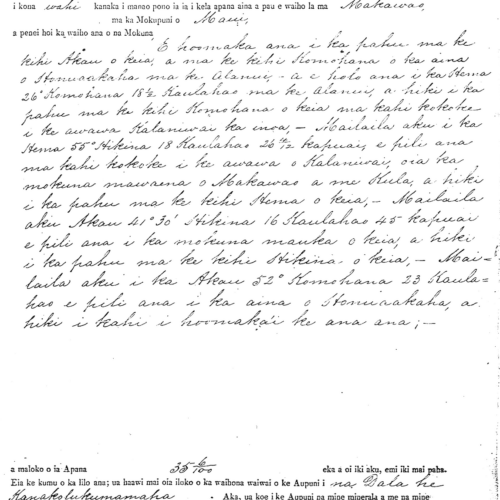 i kona wahi kanaka i manao pono ia ia i kela apana aina a pau e waiho la ma Makawao,
ma ka Mokupuni o Maui,
a penei hoi ka waiho ana o na Mokuna
E hoomaka ana i ka pahu ma ke
kihi Akau o keia, a ma ke kihi Komohana o ka aina
o Honuaakaha ma ke Alanui, - a e holo ana i ka Hema
26° Komohana 18½ Kaulahao ma ke Alanui, a hiki i ka
pahu ma ke kihi Komohana o keia ma kahi kokoke
i ke awawa Kalaniwai ka inoa, - Mailaila aku i ka
Hema 55° Hikina 18 Kaulahao 26 4/12 kapuai, e pili ana
ma kahi kokoke i ke awawa o Kalaniwai, oia ka
mokuna mawaena o Makawao a me Kula, a hiki
i ka pahu ma ke kihi Hema o keia, - Mailaila
aku Akau 41° 30' Hikina 16 Kaulahao 45 kapuai
e pili ana i ka mokuna mauka o keia, a hiki
i ka pahu ma ke kihi Hikina o keia, - Mai-
laila aku i ka Akau 52° Komohana 23 Kaula-
hao e pili ana i ka aina o Honuaakaha, a
hiki i kahi i hoomakai ke ana ana; -
a maloko o ia Apana 35 6/100 eka a oi iki aku, emi iki mai paha.
Eia ke kumu o ka lilo ana; ua haawi mai oia iloko o ka waihona waiwai o ke Aupuni i na Dala he
Kanakolukumamaha
- Aka, ua koe i ke Aupuni na mine minerala a me na mine